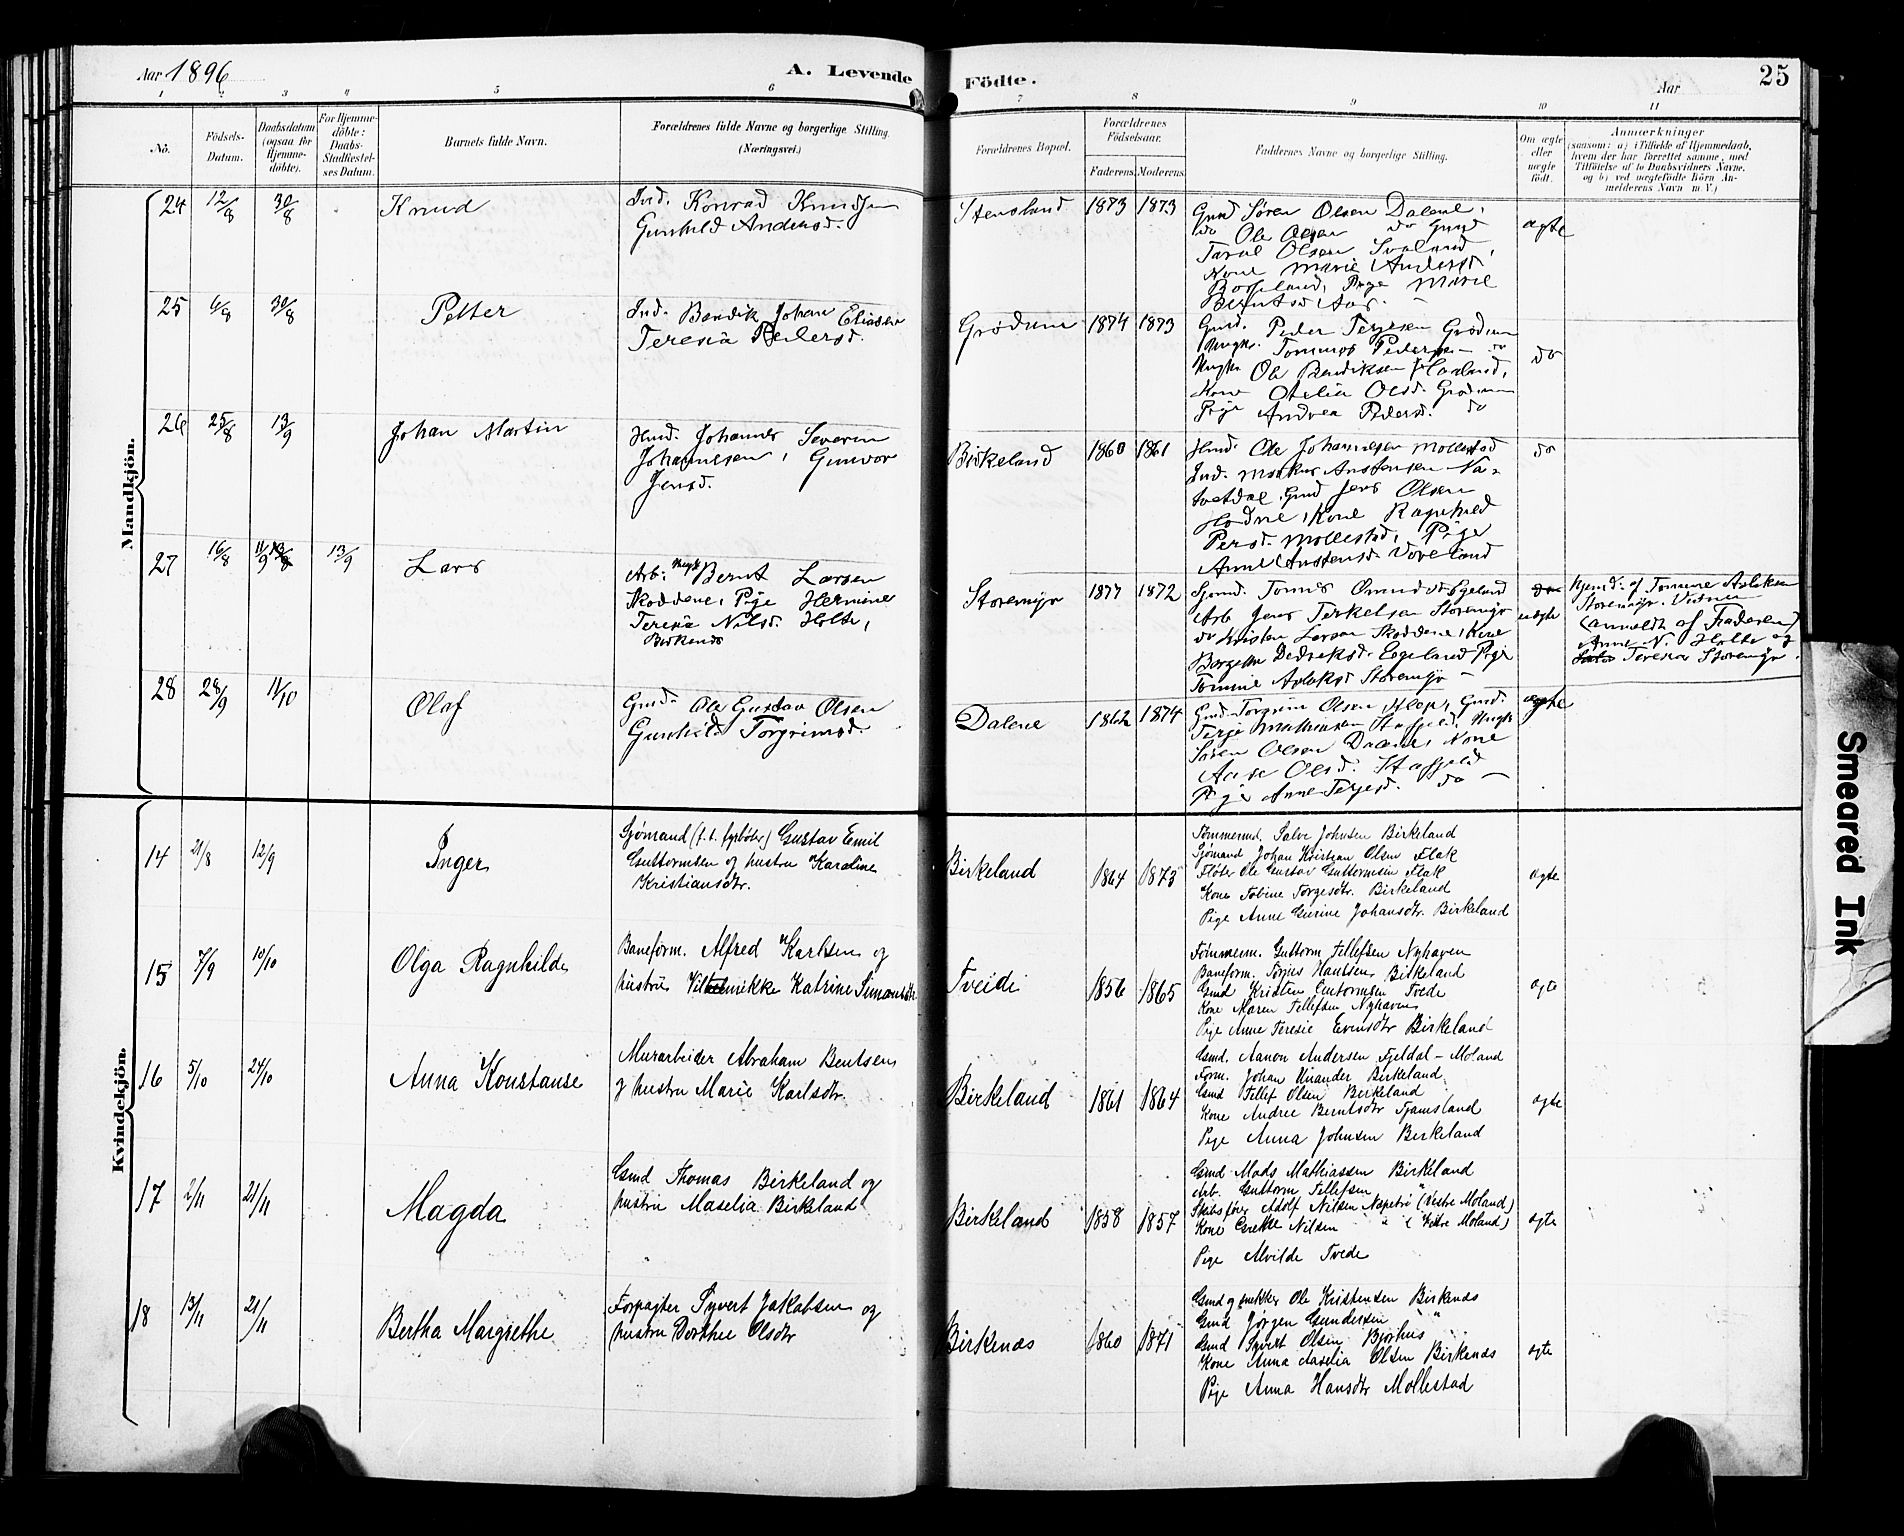 Aar 1896
A. Levende
Födte.
Aar
25
1 2 3 4 5 6 7 8 9 10 11
No.
Födsels-
Datum.
Daabsdatum
(ogsaa for
Hjemme-
döbte).
For Hjemme-
döbte:
Daabs-
Stadfæstel-
ses Datum.
Barnets fulde Navn.
Forældrenes fulde Navne og borgerlige Stilling.
(Næringsvei.)
Forældrenes Bopæl.
Forældrenes
Födselsaar.
Faderens. Moderens.
Faddernes Navne og borgerlige Stilling.
Om ægte
eller
uægte
födt.
Anmærkninger
(saasom: a) i Tilfælde af Hjemmedaab,
hvem der har forrettet samme, med
Tilföielse af to Daabsvidners Navne,
og b) ved uægtefödte Börn An-
melderens Navn m. V.)
Mandkjön.
24 12/8 30/8
Knud
Ind. Konrad Knudsen
Gunhild Andersd.
Stensland 1873 1873
Gmd Søren Olsen Dalene,
do Ole Olsen do Gmd
Taral Olsen Svaland,
Kone Marie Andersd.
Pige Marie
ægte
25 6/8 30/8
Petter
Ind. Bendik Johan Eliasen
Teresia Pedersd.
Grødum 1874 1873
Gmd. Peder Terjesen Grødum
Ungk. Tommas Pedersen do
Ungk. Ole Bendiksen
Kone Otelia Olsd. Grødum
Pige Andrea Pedersd. do
do
26 25/8 13/9
Johan Martin
Hmd. Johannes Severin
Johannesen, Gunvor
Jensd.
Birkeland 1860 1861
Hmd. Ole Johannesen Mollestad
Ind. Markus Anstensen Na-
Gmd Jens Olsen
Kone Ragnhild
Persd. Mollestad, Pige
Anne Anstensd.
do
27 16/8 11/9 13/9
Lars
Arb. Ungk Bernt Larsen
Skoddene, Pige Hermine
Teresia Nilsd. Holte,
Birkenes
Storemyr 1877 1872
Egeland
Arb Jens Terkelsen Storemyr
do Kristen Larsen Skoddene, Kone
Egeland Pige
Tomine Aslaksd Storemyr
uægte
Hjemd. af Tomine Aslaksen
Storemyr. Vidner
(anmeldt af Faderen)
Anne N. Holte og
Teresia Storemyr.
28 28/9 11/10
Olaf
Gmd. Ole Gustav Olsen
Gunhild Torgrimsd.
Dalene 1862 1874
Gmd Torgrim Olsen Gmd.
Terje Mathiasen Ungk
Søren Olsen Dalene, Kone
Aase Olsd.
Pige Anne Terjesd. do
ægte
Kvindekjön.
14 21/8 12/9
Inger
Sjømand (f.t. fyrbøter) Gustav Emil
Guttormsen og hustru Karoline
Kristiansdtr.
Birkeland 1864 1873
Tømmermd. Salve Johnsen Birkeland
Sjømand Johan Kristian Olsen Flak
Fløter Ole Gustav Guttormsen Flak
Kone Tobine Torgesdtr. Birkeland
Pige Anne Gurine Johansdtr. Birkeland
ægte
15 7/9 10/10
Olga Ragnhilde
Baneform. Alfred Karlsen og
hustru Vilmikke Katrine Simonsdtr
Tveide 1856 1865
Tømmerm. Guttorm Tellefsen Nyhaven
Baneform. Torjus Hansen Birkeland
Gmd Kristen Guttormsen Tvede
Kone Maren Tellefsen Nyhaven
Pige Anne Teresie Evensdtr Birkeland
ægte
16 5/10 24/10
Anna Konstanse
Murarbeider Abraham Bentsen
og hustru Marie Karlsdtr.
Birkeland 1861 1864
Gmd. Aanon Andersen Fjeldal - Moland
Form. Johan Unander Birkeland
Gmd Tellef Olsen Birkeland
Kone Andree Berntsdtr Tjamsland
Pige Anna Johnsen Birkeland
ægte
17 2/11 21/11
Magda
Gmd Thomas Birkeland og
hustru Maselia Birkeland
Birkeland 1858 1857
Gmd Mads Mathiassen Birkeland
Arb. Guttorm Tellefsen "
Skibsfører Adolf Nilsen (Vestre Moland)
Kone Grethe Nilsen " (Vestre Moland)
Pige Alvilde Tvede
ægte
18 13/11 21/11
Bertha Margrethe
Forpagter Syvert Jakobsen og
hustru Dorthee Olsdtr
Birkenæs 1860 1871
Gmd og snekker Ole Kristensen Birkenæs
Gmd Jørgen Gundersen "
Gmd Syvert Olsen Bjorhus
Kone Anna Aaselia Olsen Birkenæs
Pige Anna Hansdtr Mollestad
ægte
Smeared Ink